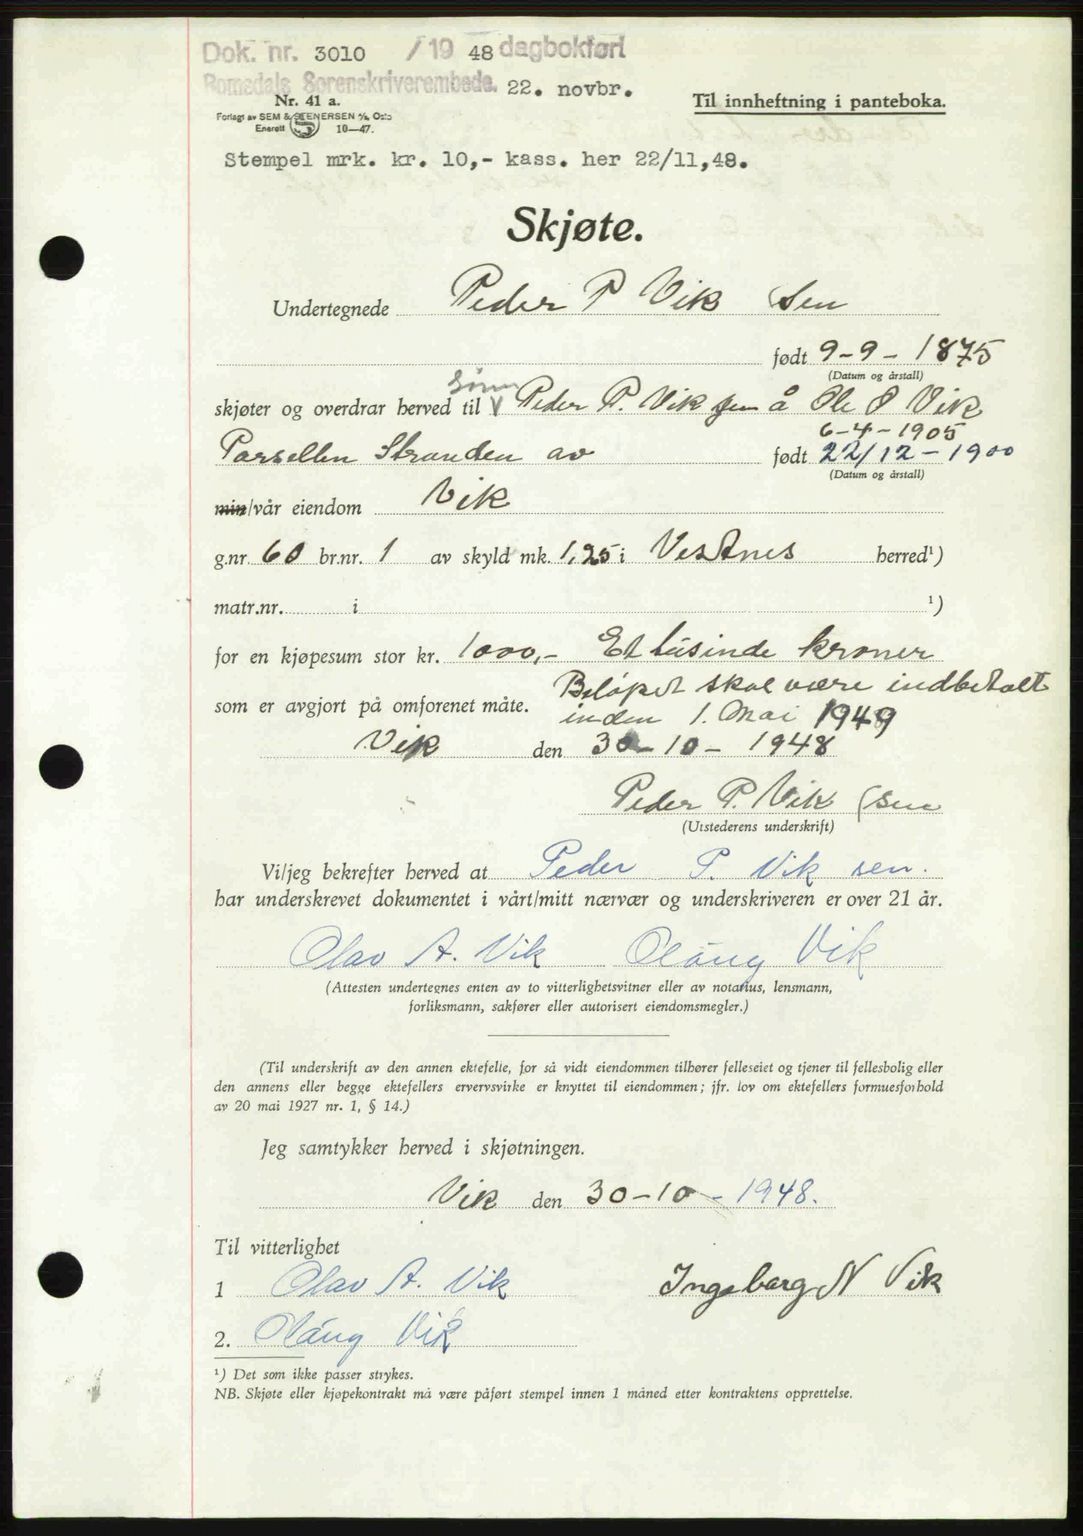 Dok. nr. 3010 /19 48 dagbokført
Romsdals Sorenskriverembede. 22. novbr.
Nr. 41 a.
Til innheftning i panteboka.
Forlagt av SEM & STENERSEN A/S, Oslo
Enerett 10—47.
Stempel mrk. kr. 10,- kass. her 22/11,48.
Skjøte.
Undertegnede Peder P Vik sen
født 9-9-1875
(Datum og årstall)
skjøter og overdrar herved til Peder P. Vik jun å Ole P Vik
6-4-1905
Parsellen Stranden av født 22/12-1900
(Datum og årstall)
min/vår eiendom Vik
g.nr. 60 br.nr. 1 av skyld mk. 1,25 i Vestnes herred¹)
matr.nr. i ¹)
for en kjøpesum stor kr. 1000,- Et tusinde kroner
som er avgjort på omforenet måte. Beløpet skal være indbetalt
inden 1. Mai 1949
Vik den 30-10-1948
Peder P. Vik (sen
(Utstederens underskrift)
Vi/jeg bekrefter herved at Peder P. Vik sen.
har underskrevet dokumentet i vårt/mitt nærvær og underskriveren er over 21 år.
Olav A. Vik Oláug Vik
(Attesten undertegnes enten av to vitterlighetsvitner eller av notarius, lensmann,
forliksmann, sakfører eller autorisert eiendomsmegler.)
(Til underskrift av den annen ektefelle, for så vidt eiendommen tilhører felleseiet og tjener til fellesbolig eller
den annens eller begge ektefellers ervervsvirke er knyttet til eiendommen; jfr. lov om ektefellers formuesforhold
av 20 mai 1927 nr. 1, § 14.)
Jeg samtykker herved i skjøtningen.
Vik den 30-10-1948.
Til vitterlighet
1 Olav A. Vik Ingebarg N Vik
2. Oláug Vik
¹) Det som ikke passer strykes.
NB. Skjøte eller kjøpekontrakt må være påført stempel innen 1 måned etter kontraktens opprettelse.